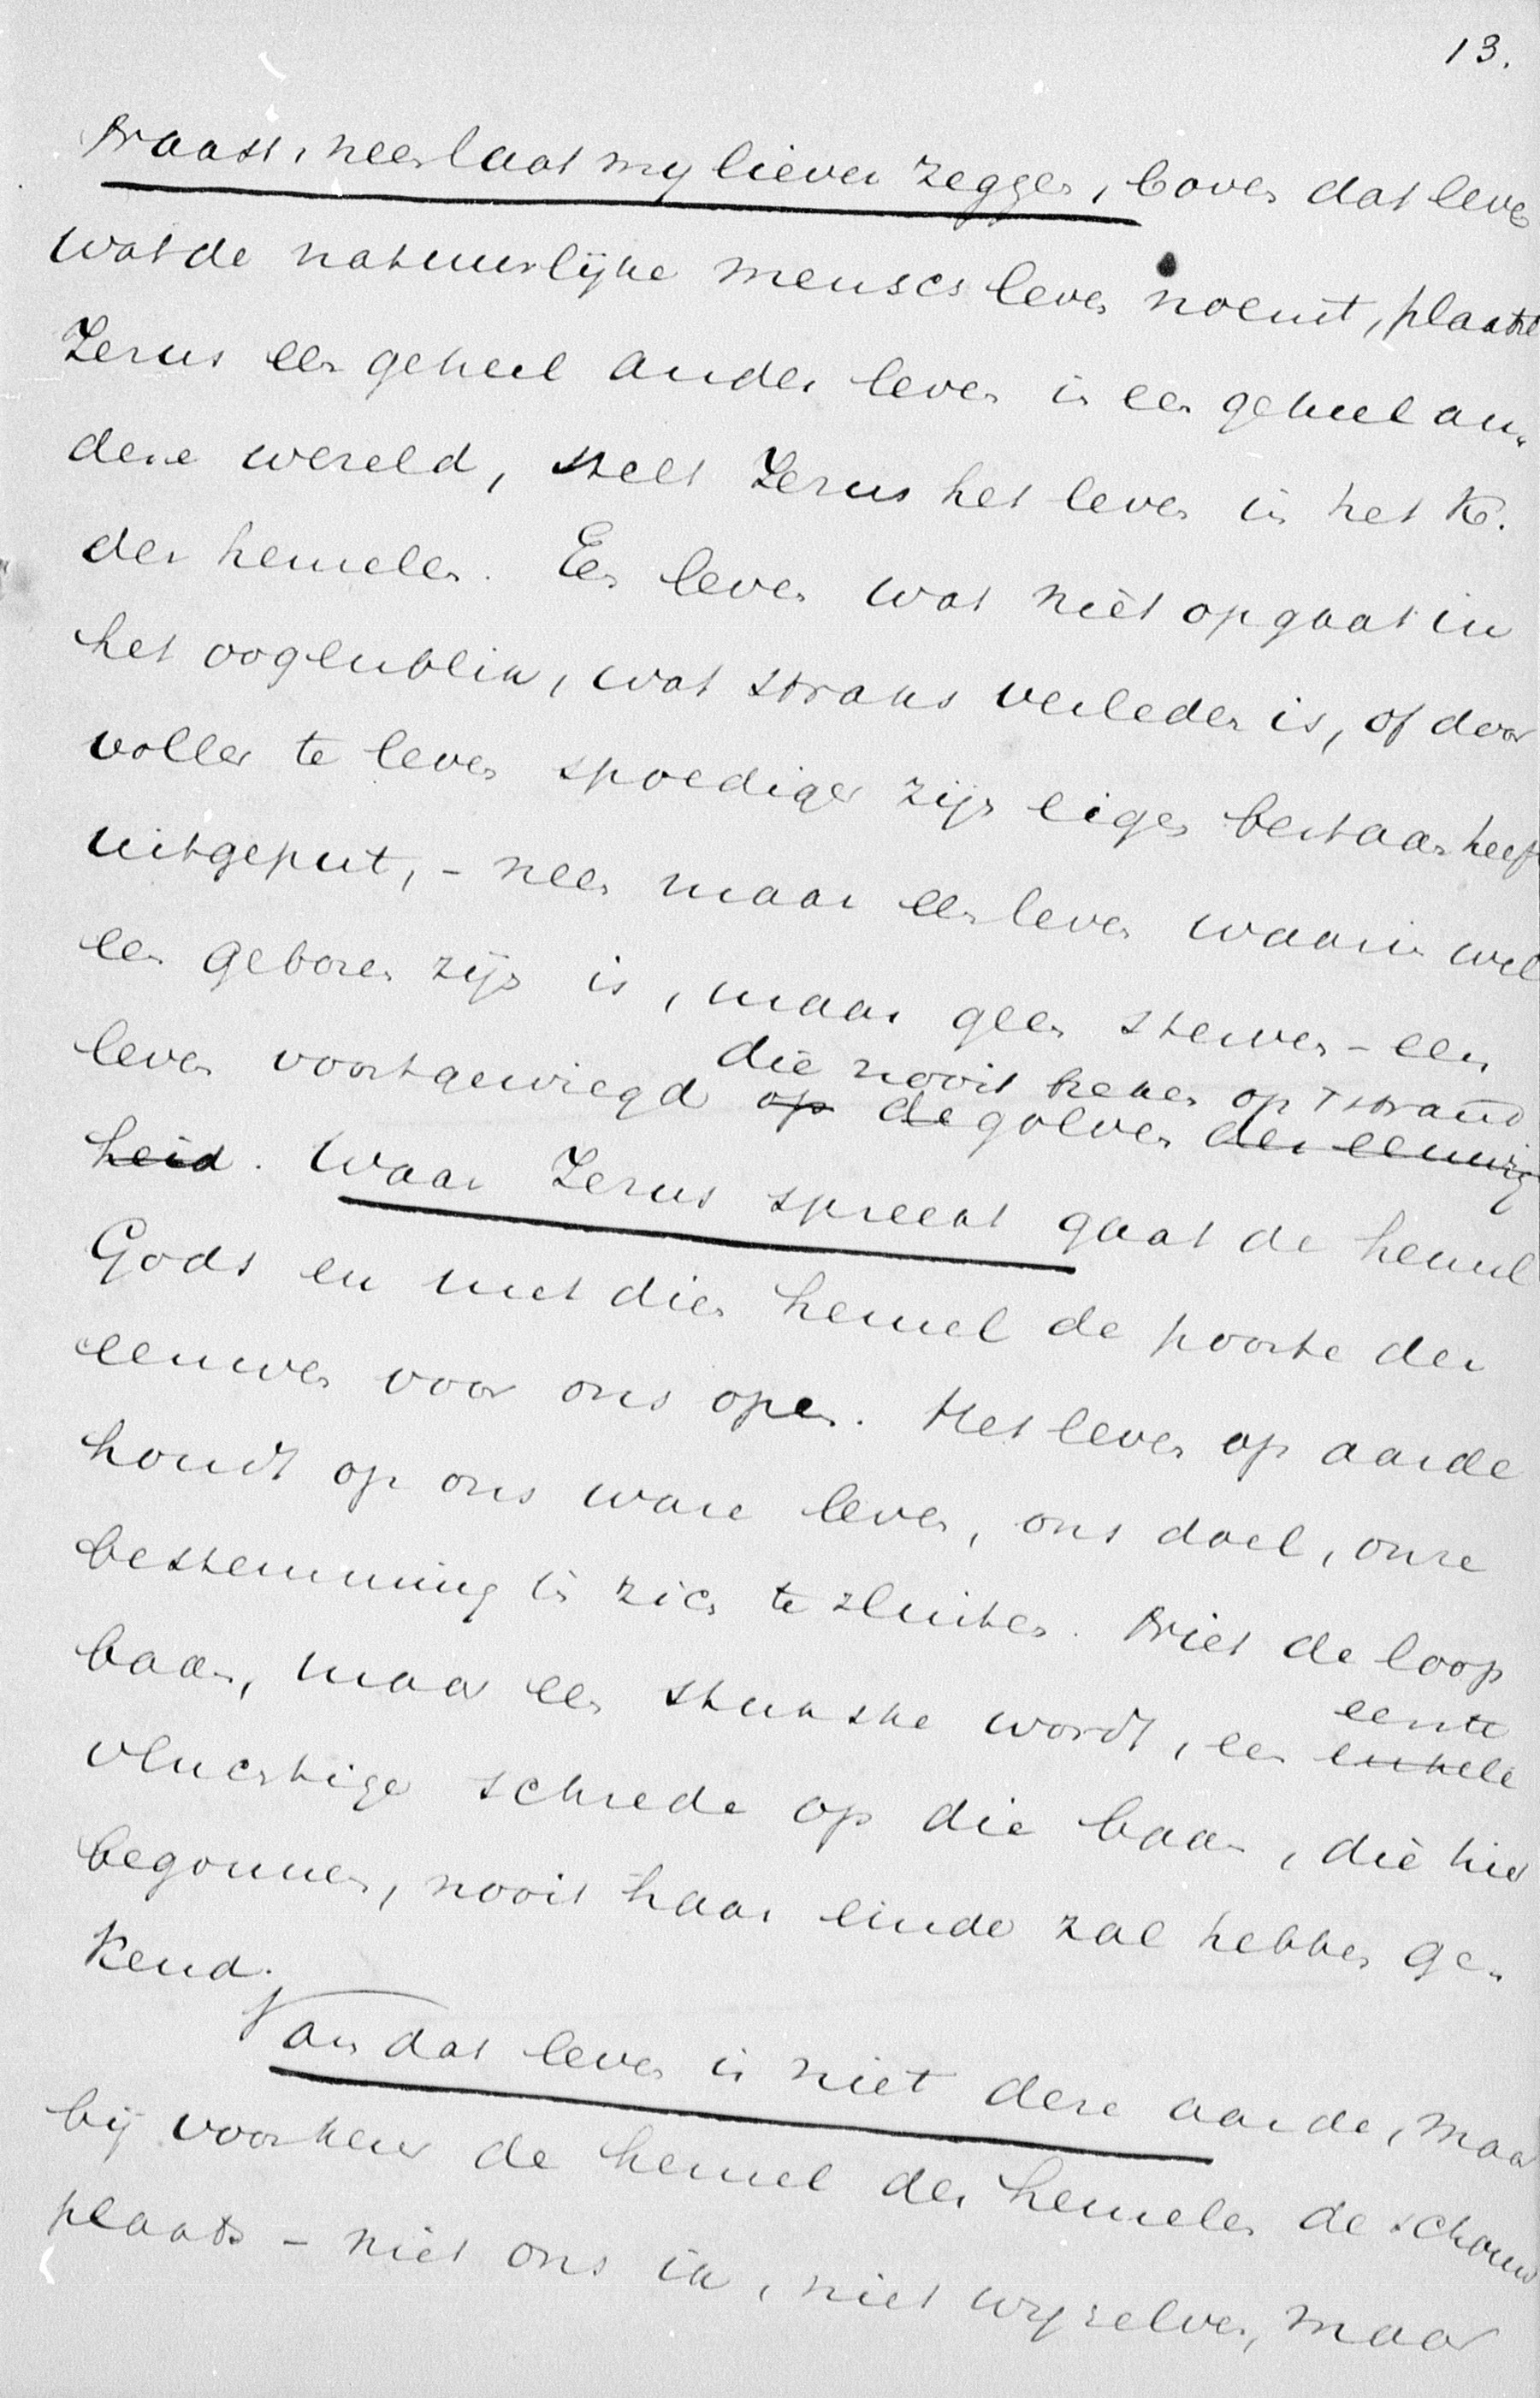 13.
Naast, neen laat my liever zeggen, boven dat leven
wat de natuurlijke mensch leven noemt, plaatst
Jezus een geheel ander leven in een geheel an-
dere wereld, stelt Jezus het leven in het K.
der hemelen. Een leven wat niet opgaat in
het oogenblik, wat straks verleden is, of door
voller te leven spoediger zijn eigen bestaan heeft
uitgeput, - neen maar een leven waarin wel
een geboren zijn is, maar geen sterven - een
die nooit breken op 't strand
leven voortgewiegd op de golven der eeuwig
heid. Waar Jezus spreekt gaat de hemel
Gods en met dien hemel de poorte der
eeuwen voor ons open. Het leven op aarde
houdt op ons ware leven, ons doel, onze
bestemming in zich te sluiten. Niet de loop
baan, maar een stukske wordt, een
eerste
enkele
vluchtige schrede op die baan, die hier
begonnen, nooit haar einde zal hebben ge-
kend.
Van dat leven is niet deze aarde, maar
bij voorkeur de hemel der hemelen de schouw
plaats - niet ons ik, niet wyzelven, maar